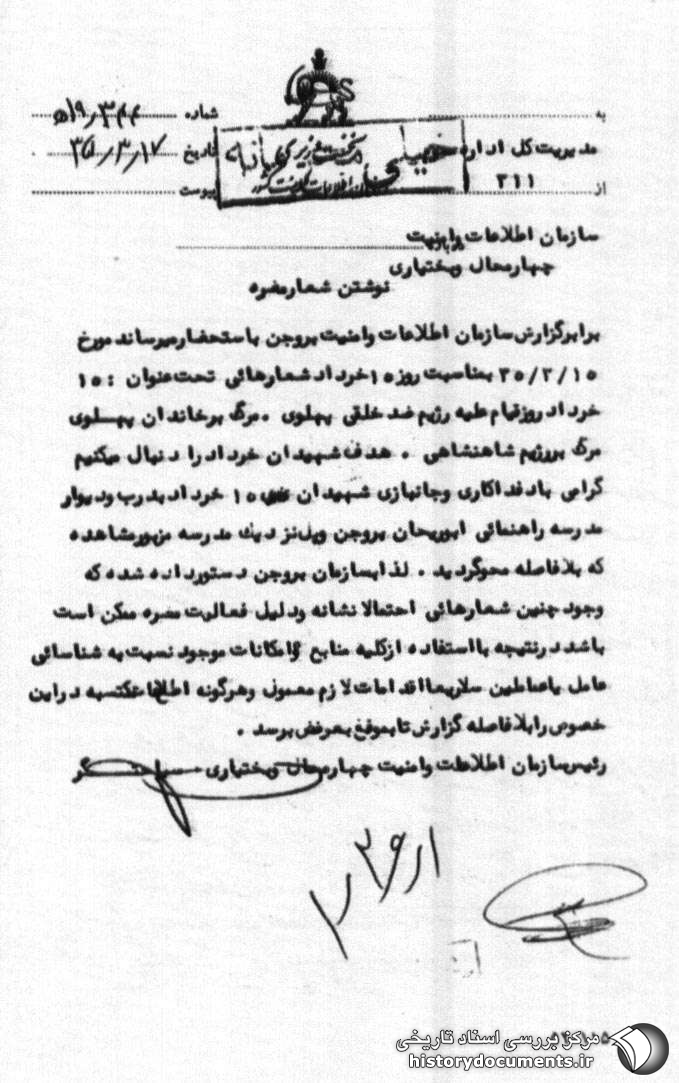 به
شماره ۱۹٫۳۴۴ ه‍
خیلی محرمانه
نخست وزیری
سازمان اطلاعات و امنیت کشور
مدیریت کل اداره
تاریخ ۳۵٫۳٫۱۷
از ۳۱۱
پیوست
سازمان اطلاعات وامنیت
چهارمحال وبختیاری
نوشتن شعار مضره
برابر گزارش سازمان اطلاعات وامنیت بروجن باستحضار میرساند مورخ
۳۵/۳/۱۵ بمناسبت روز ۱۵ خرداد شعارهائی تحت عنوان : ۱۵
خرداد روز قیام علیه رژیم ضد خلقی پهلوی . مرگ برخاندان پهلوی
مرگ بررژیم شاهنشاهی . هدف شهیدان خرداد را دنبال میکنیم
گرامی باد فداکاری وجانبازی شهیدان ۱۵ خرداد بدرب ودیوار
مدرسه راهنمائی ابوریحان بروجن وپل نزدیک مدرسه مزبور مشاهده
که بلافاصله محوگردید . لذا بسازمان بروجن دستور داده شده که
وجود چنین شعارهائی احتمالا نشانه ودلیل فعالیت مضره ممکن است
باشد درنتیجه بااستفاده ازکلیه منابع وامکانات موجود نسبت به شناسائی
عامل یاعاملین سریعا اقدامات لازم معمول وهرگونه اطلاعات مکتسبه دراین
خصوص رابلافاصله گزارش تابموقع بعرض برسد .
رئیس سازمان اطلاعات وامنیت چهارمحال وبختیاری
مرکز بررسی اسناد تاریخی
historydocuments.ir